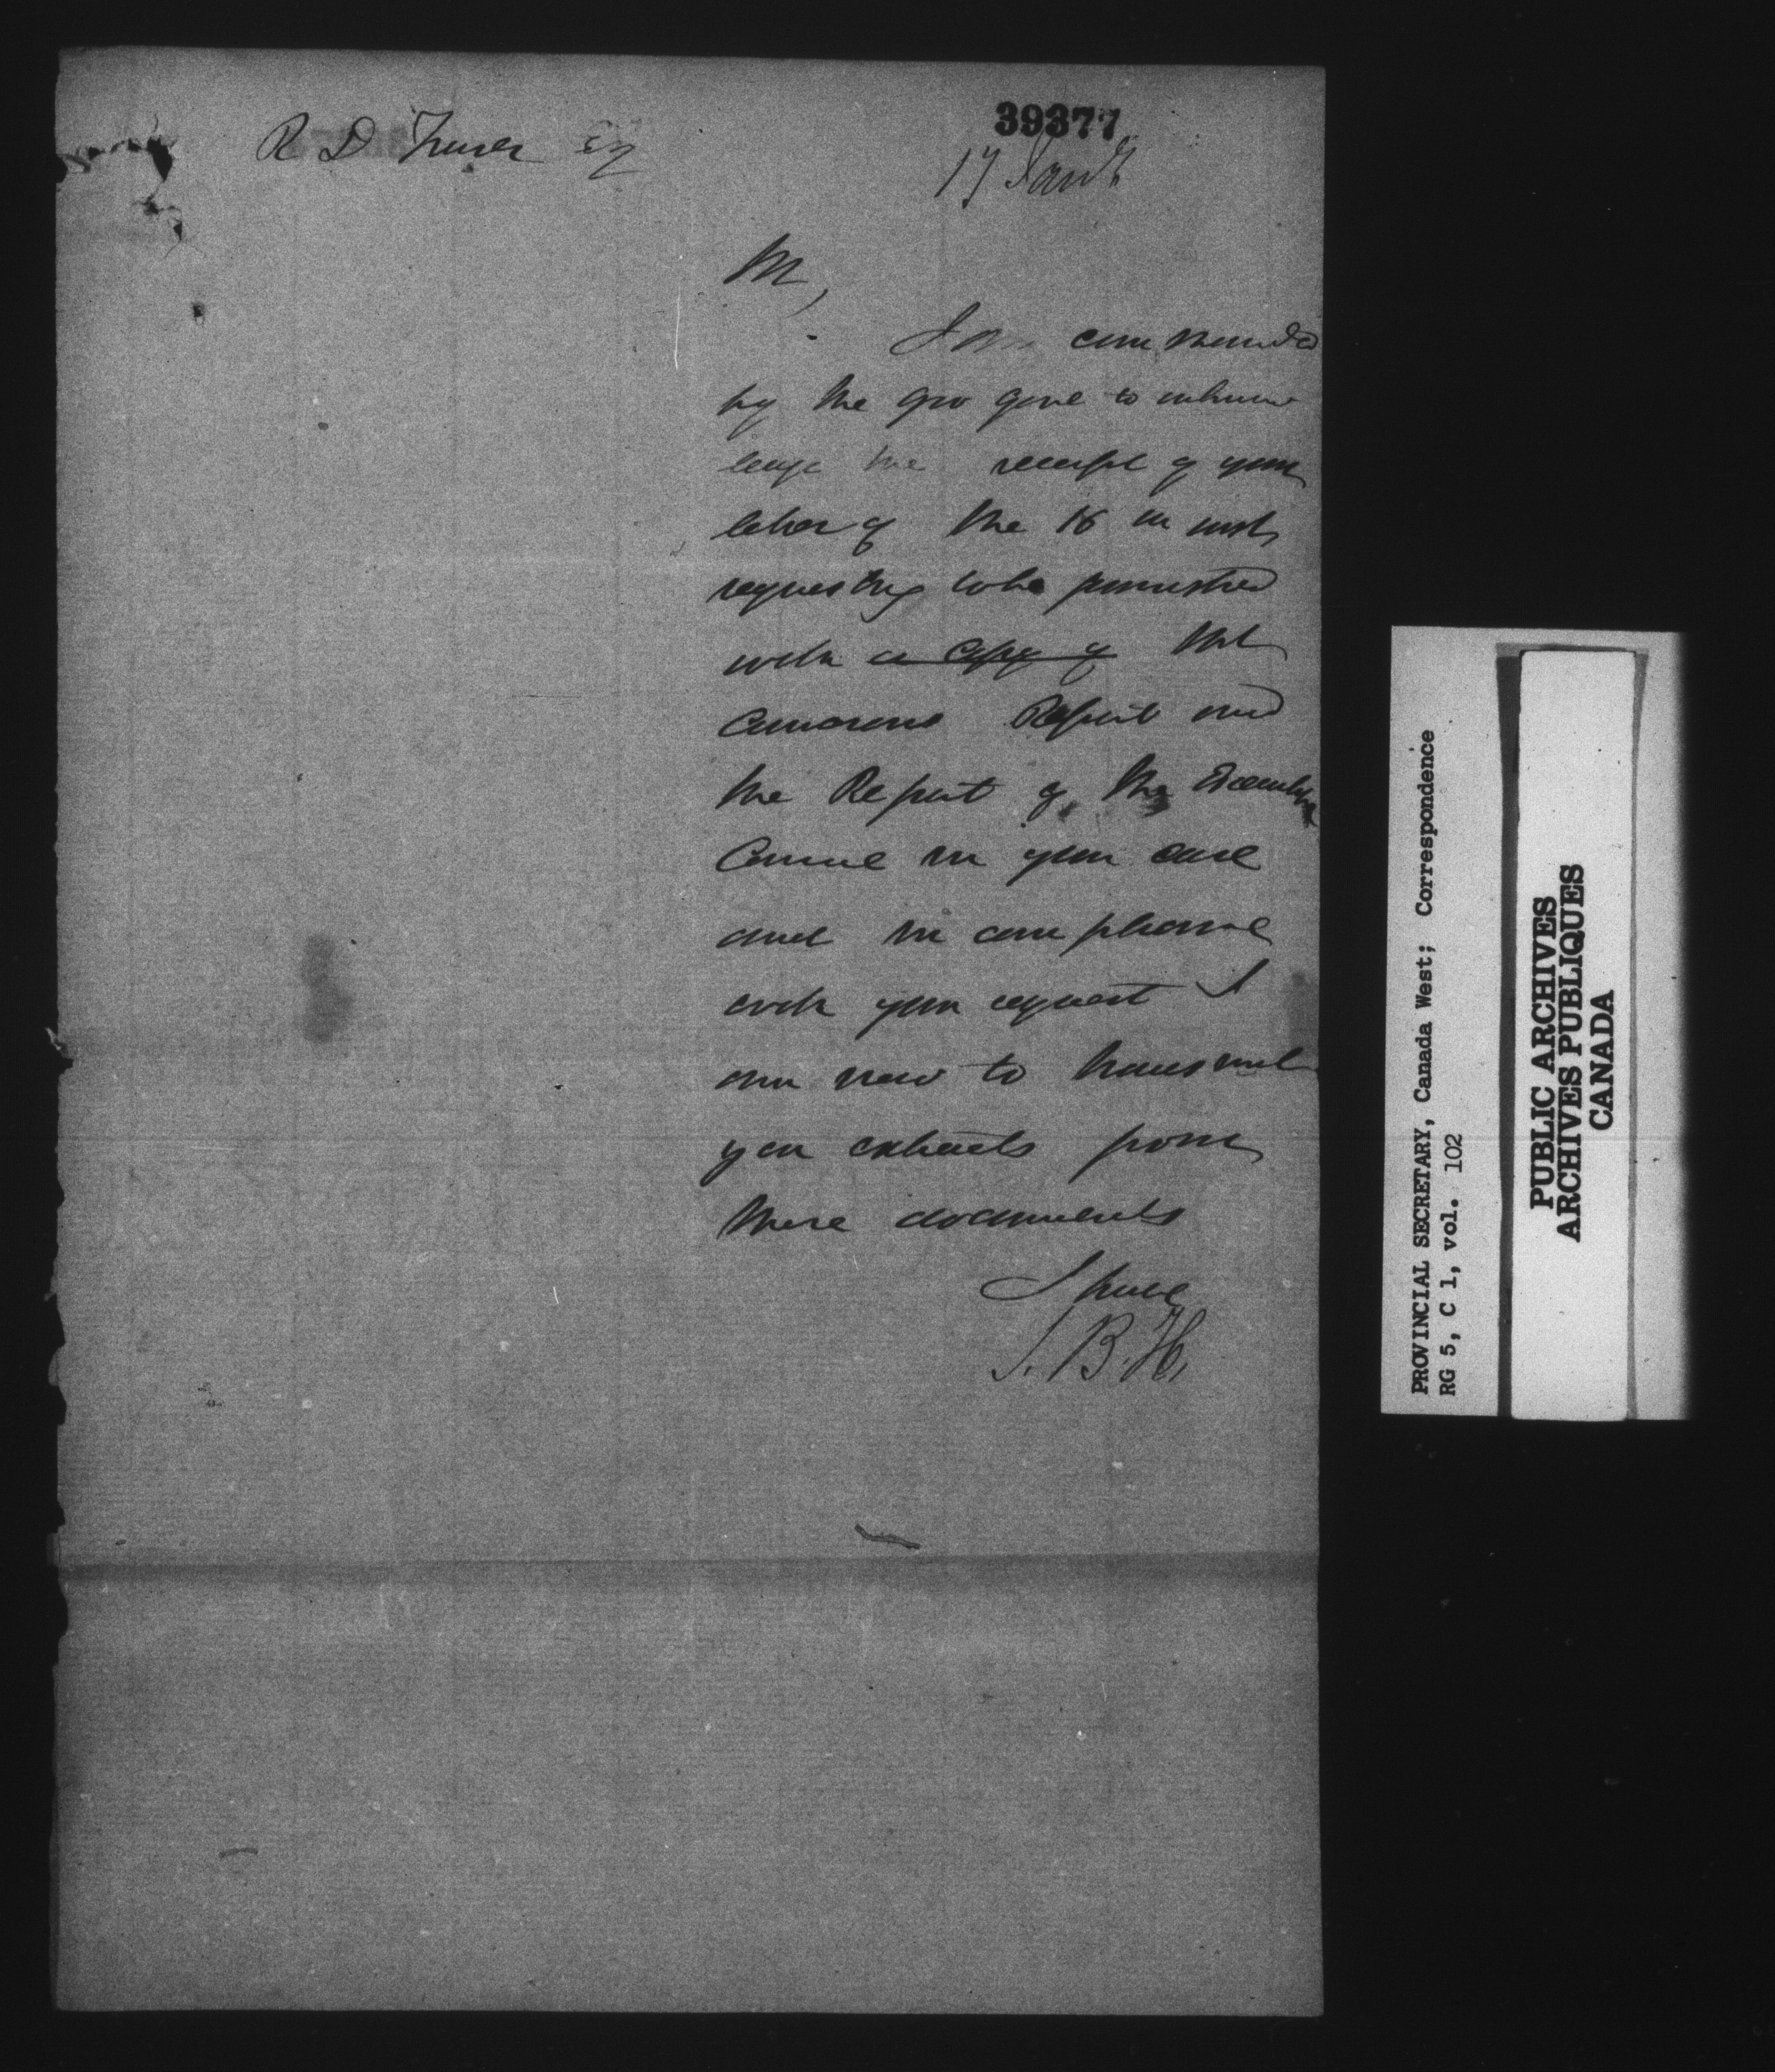 39377
R D Fraser Esq
17 Jan
Sir,
I am commanded
by the Gov Genl to acknow
ledge the receipt of your
letter of the 16 inst
requesting to be furnished
with a copy of that
Camerons Report and
the Report of the Executive
Council in your case
and in compliance
with your request I
am now to transmit
you extracts from
these documents
I have
S. B. H.
PROVINCIAL SECRETARY, Canada West; Correspondence
RG 5, C 1, vol. 102
PUBLIC ARCHIVES
ARCHIVES PUBLIQUES
CANADA